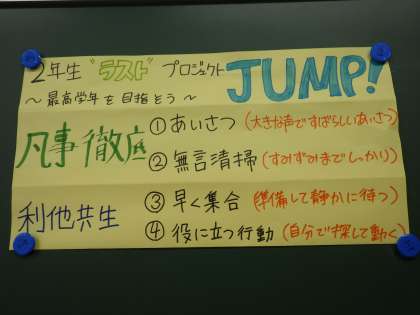 2年生 "ラスト" プロジェクト JUMP!
～最高学年を目指そう～
凡事徹底
①あいさつ (大きな声ですばらしいあいさつ)
②無言清掃 (すみずみまでしっかり)
利他共生
③早く集合 (準備して静かに待つ)
④役に立つ行動 (自分で探して動く)